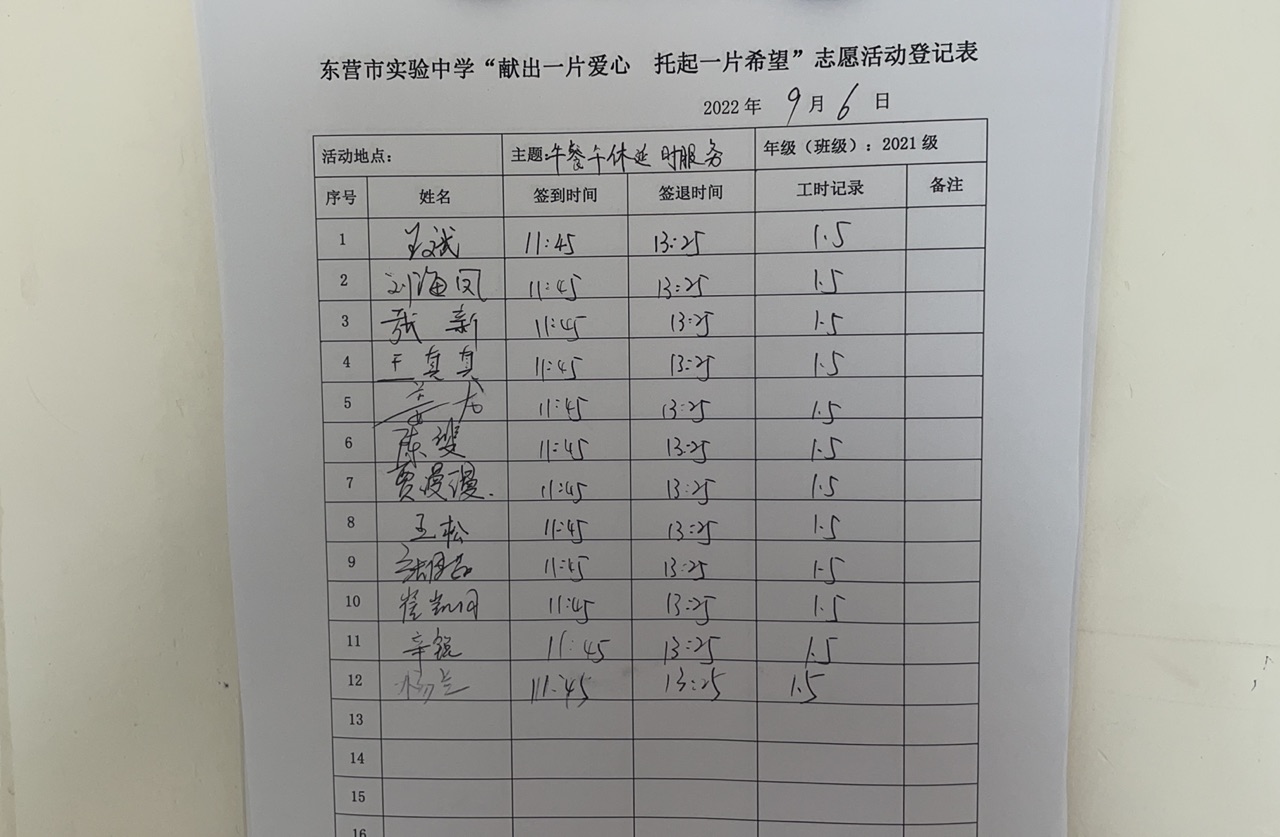 东营市实验中学“献出一片爱心 托起一片希望”志愿活动登记表
2022 年 9 月 6 日
活动地点： 主题：午餐午休延时服务 年级（班级）：2021 级
序号 姓名 签到时间 签退时间 工时记录 备注
1 11:45 13:25 1.5
2 刘海凤 11:45 13:25 1.5
3 张新 11:45 13:25 1.5
4 王真真 11:45 13:25 1.5
5 11:45 13:25 1.5
6 11:45 13:25 1.5
7 贾漫漫. 11:45 13:25 1.5
8 王松 11:45 13:25 1.5
9 11:45 13:25 1.5
10 11:45 13:25 1.5
11 辛锐 11:45 13:25 1.5
12 杨兰 11:45 13:25 1.5
13
14
15
16